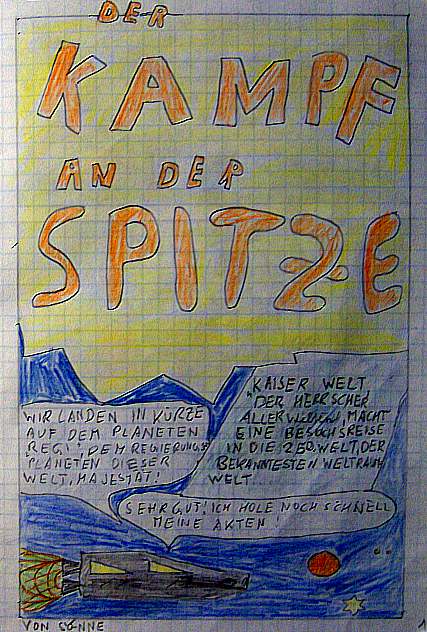 DER
KAMPF
AN DER
SPITZE
WIR LANDEN IN KÜRZE
AUF DEM PLANETEN
"REGI", DEM REGIERUNGS-
PLANETEN DIESER
WELT, MAJESTÄT!
KAISER WELT,
"DER HERRSCHER
ALLER WELTEN" MACHT
EINE BESUCHSREISE
IN DIE 260. WELT, DER
BEKANNTESTEN WELTRAUM
WELT...
SEHR GUT! ICH HOLE NOCH SCHNELL
MEINE AKTEN!
VON SÖNNE
1